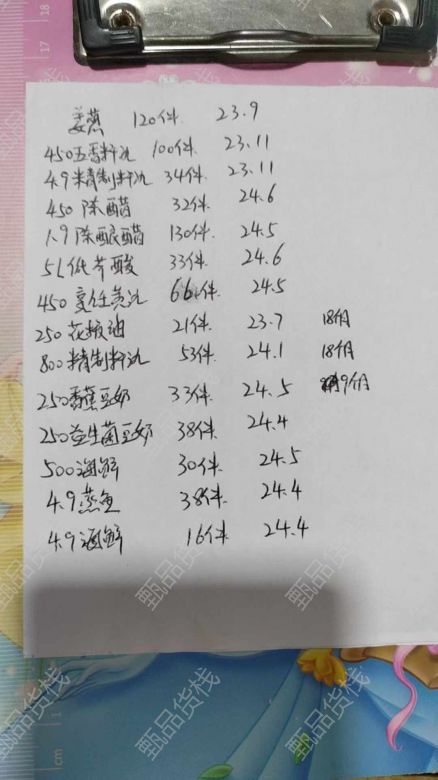 姜蒸 120件 23.9
450五香料氿 100件 23.11
4.9精制料氿 34件 23.11
450陈醋 32件 24.6
1.9陈酿醋 130件 24.5
5L低芥酸 33件 24.6
450烹饪黄氿 66件 24.5
250花椒油 21件 23.7 18个月
800精制料氿 53件 24.1 18个月
250香蕉豆奶 33件 24.5 9个月
250益生菌豆奶 38件 24.4
500海鲜 30件 24.5
4.9蒸鱼 38件 24.4
4.9海鲜 16件 24.4
甄品货栈
cm
17
18